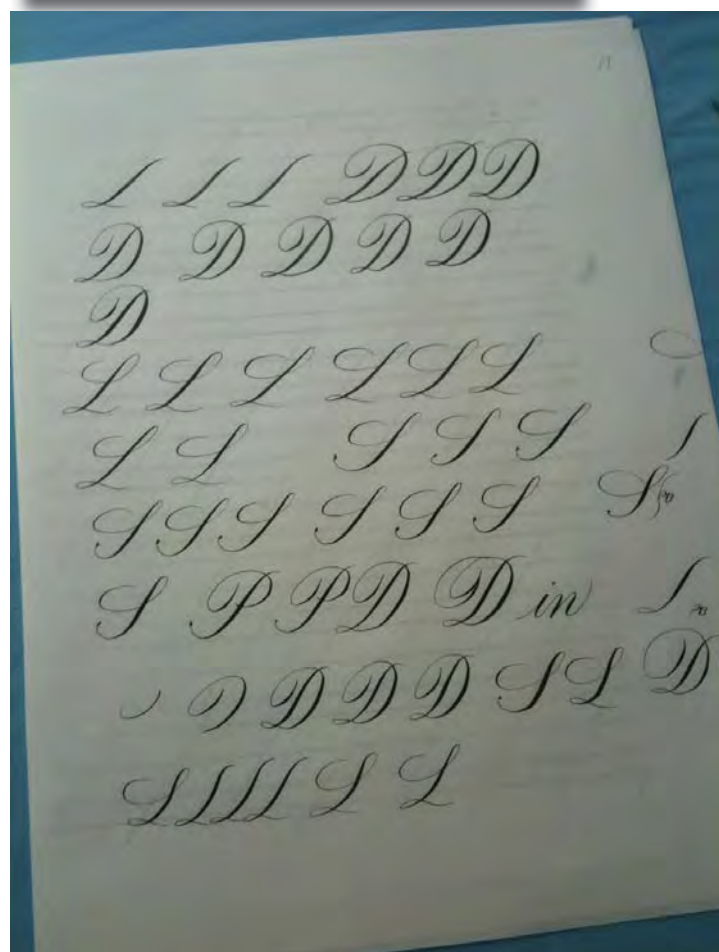 D D D
D D D D D
D
L L L L L L
L L S S S
S S S S S S S
S P P D D in
D D D D S L D
S L L L S L